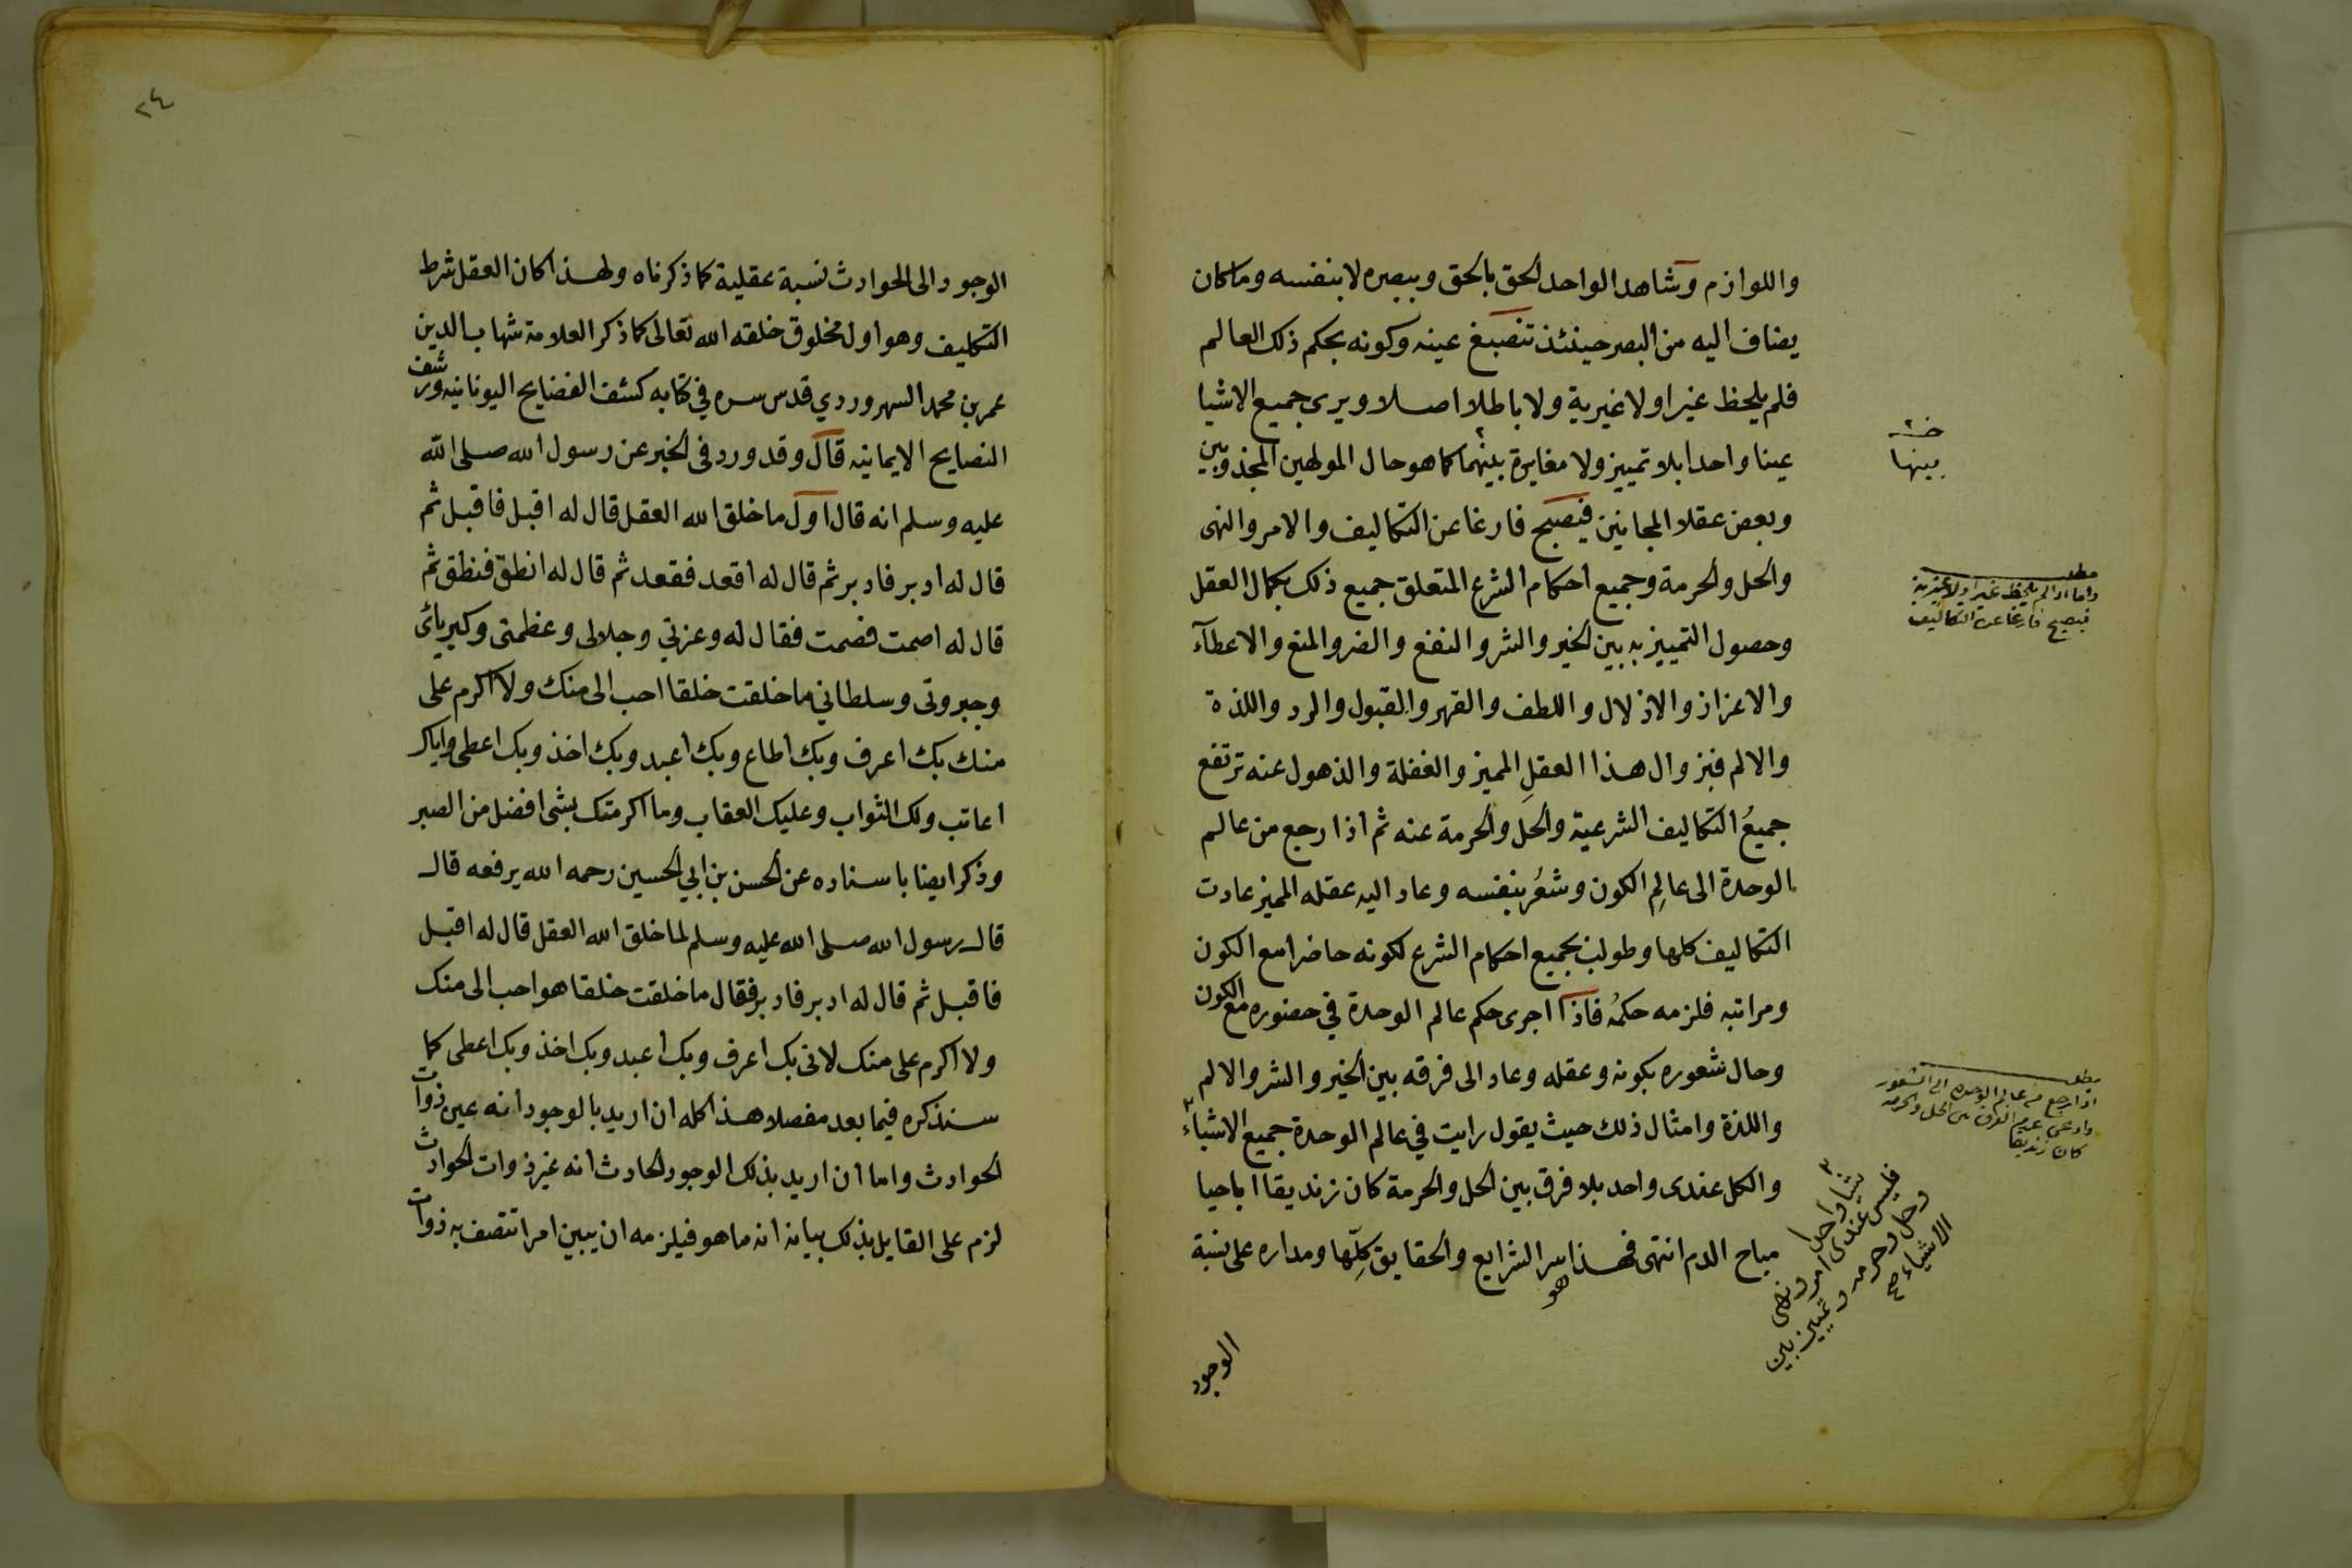 واللوازم وشاهد الواحد الحق بالحق وببصره لا بنفسه وما كان
يضاف اليه من البصر حينئذ تنصبغ عينه وكونه بحكم ذلك العالم
فلم يلحظ غيرا ولا غيرية ولا باطلا اصلا ويرى جميع الاشيا
عينا واحدا بلا تمييز ولا مغايرة بينهما كما هو حال المولهين المجذوبين
وبعض عقلا المجانين فيصبح فارغا عن التكاليف والامر والنهى
والحل والحرمة وجميع احكام الشرع المتعلق جميع ذلك بكمال العقل
وحصول التمييز به بين الخير والشر والنفع والضر والمنع والاعطآء
والاعزاز والاذلال واللطف والقهر والقبول والرد واللذة
والالم فبزوال هذا العقلِ المميز والغفلة والذهول عنه ترتفع
جميعُ التكاليف الشرعية والحل والحرمة عنه ثم اذا رجع من عالم
الوحدة الى عالمِ الكون وشعُر بنفسه وعاد اليه عقله المميز عادت
التكاليف كلها وطولب بجميع احكام الشرع لكونه حاضرا مع الكون
ومراتبه فلزمه حكمُه فاذا اجرى حكم عالم الوحدة في حضوره مع الكون
وحال شعوره بكونه وعقله وعاد الى فرقه بين الخير والشر والالم
واللذة وامثال ذلك حيث يقول رايت في عالم الوحدة جميع الاشياء ٣
والكل عندى واحد بلا فرق بين الحل والحرمة كان زنديقا اباحيا
مباح الدم انتهى فهذا هو سر الشرايع والحقايق كلِّها ومداره على نسبة
الوجود
خـ ٢
بينها
مطلـ
واما اذا لم يلحظ غيرا ولا غيرية
فيصبح فارغا عن التكاليف
مطلـ
اذا رجع من عالم الوحدة الى الشعور
وادعى عدم الفرق بين الحل والحرمة
كان زنديقا
٣
شيا واحدا
فليس عندى امر ونهى
وحل وحرمه وتمييز بين
الاشياء صح
٢٤
الوجود الى الحوادث نسبة عقلية كما ذكرناه ولهذا كان العقل شرط
التكليف وهو اول مخلوق خلقه الله تعالى كما ذكر العلامة شهاب الدين
عمر بن محمد السهروردي قدس سره في كتابه كشف الفضايح اليونانيه ورشف
النصايح الايمانيه قال وقد ورد فى الخبر عن رسول الله صلى الله
عليه وسلم انه قال اول ما خلق الله العقل قال له اقبل فاقبل ثم
قال له ادبر فادبر ثم قال له اقعد فقعد ثم قال له انطق فنطق ثم
قال له اصمت فصمت فقال له وعزتي وجلالى وعظمتى وكبريائى
وجبروتى وسلطاني ما خلقت خلقا احب الى منك ولا اكرم على
منك بك اعرف وبك اطاع وبك اعبد وبك اخذ وبك اعطى واياك
اعاتب ولك الثواب وعليك العقاب وما اكرمتك بشى افضل من الصبر
وذكر ايضا باسناده عن الحسن بن ابي الحسين رحمه الله يرفعه قال
قال رسول الله صلى الله عليه وسلم لما خلق الله العقل قال له اقبل
فاقبل ثم قال له ادبر فادبر فقال ما خلقت خلقا هو احب الى منك
ولا اكرم على منك لانى بك اعرف وبك اعبد وبك اخذ وبك اعطى كما
سنذكره فيما بعد مفصلا هذا كله ان اريد بالوجود انه عين ذوات
الحوادث واما ان اريد بذلك الوجود الحادث انه غير ذوات الحوادث
لزم على القايل بذلك بيانه انه ما هو فيلزمه ان يبين امرا تتصف به ذوات